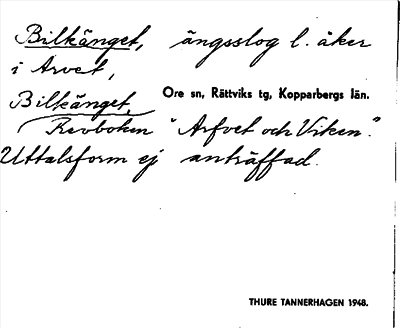 Bilkänget, ängsslog l. åker
i Arvet,
Bilkänget,
Ore sn, Rättviks tg, Kopparbergs län.
Revboken "Arfvet och Viken".
Uttalsform ej anträffad.
THURE TANNERHAGEN 1948.